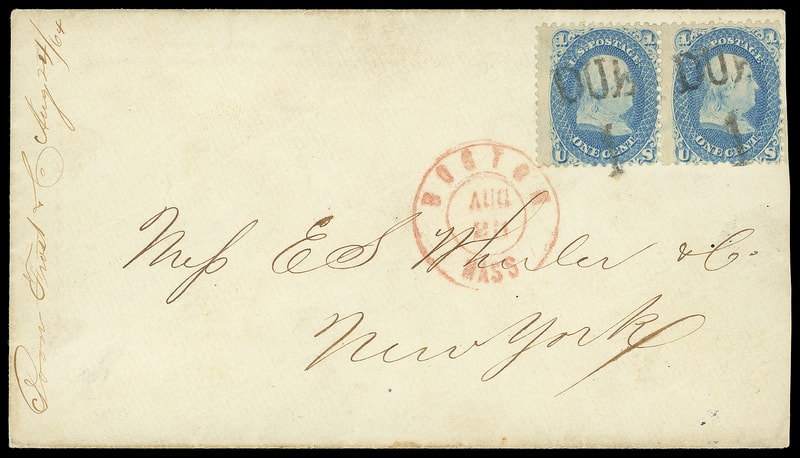 1 U.S. POSTAGE. 1
DUE
1
U ONE CENT. S
1 U.S. POSTAGE. 1
DUE
1
U ONE CENT. S
BOSTON
AUG
MASS
Mess E S Wheeler & Co.
New York
Frost & Co Aug 24/64